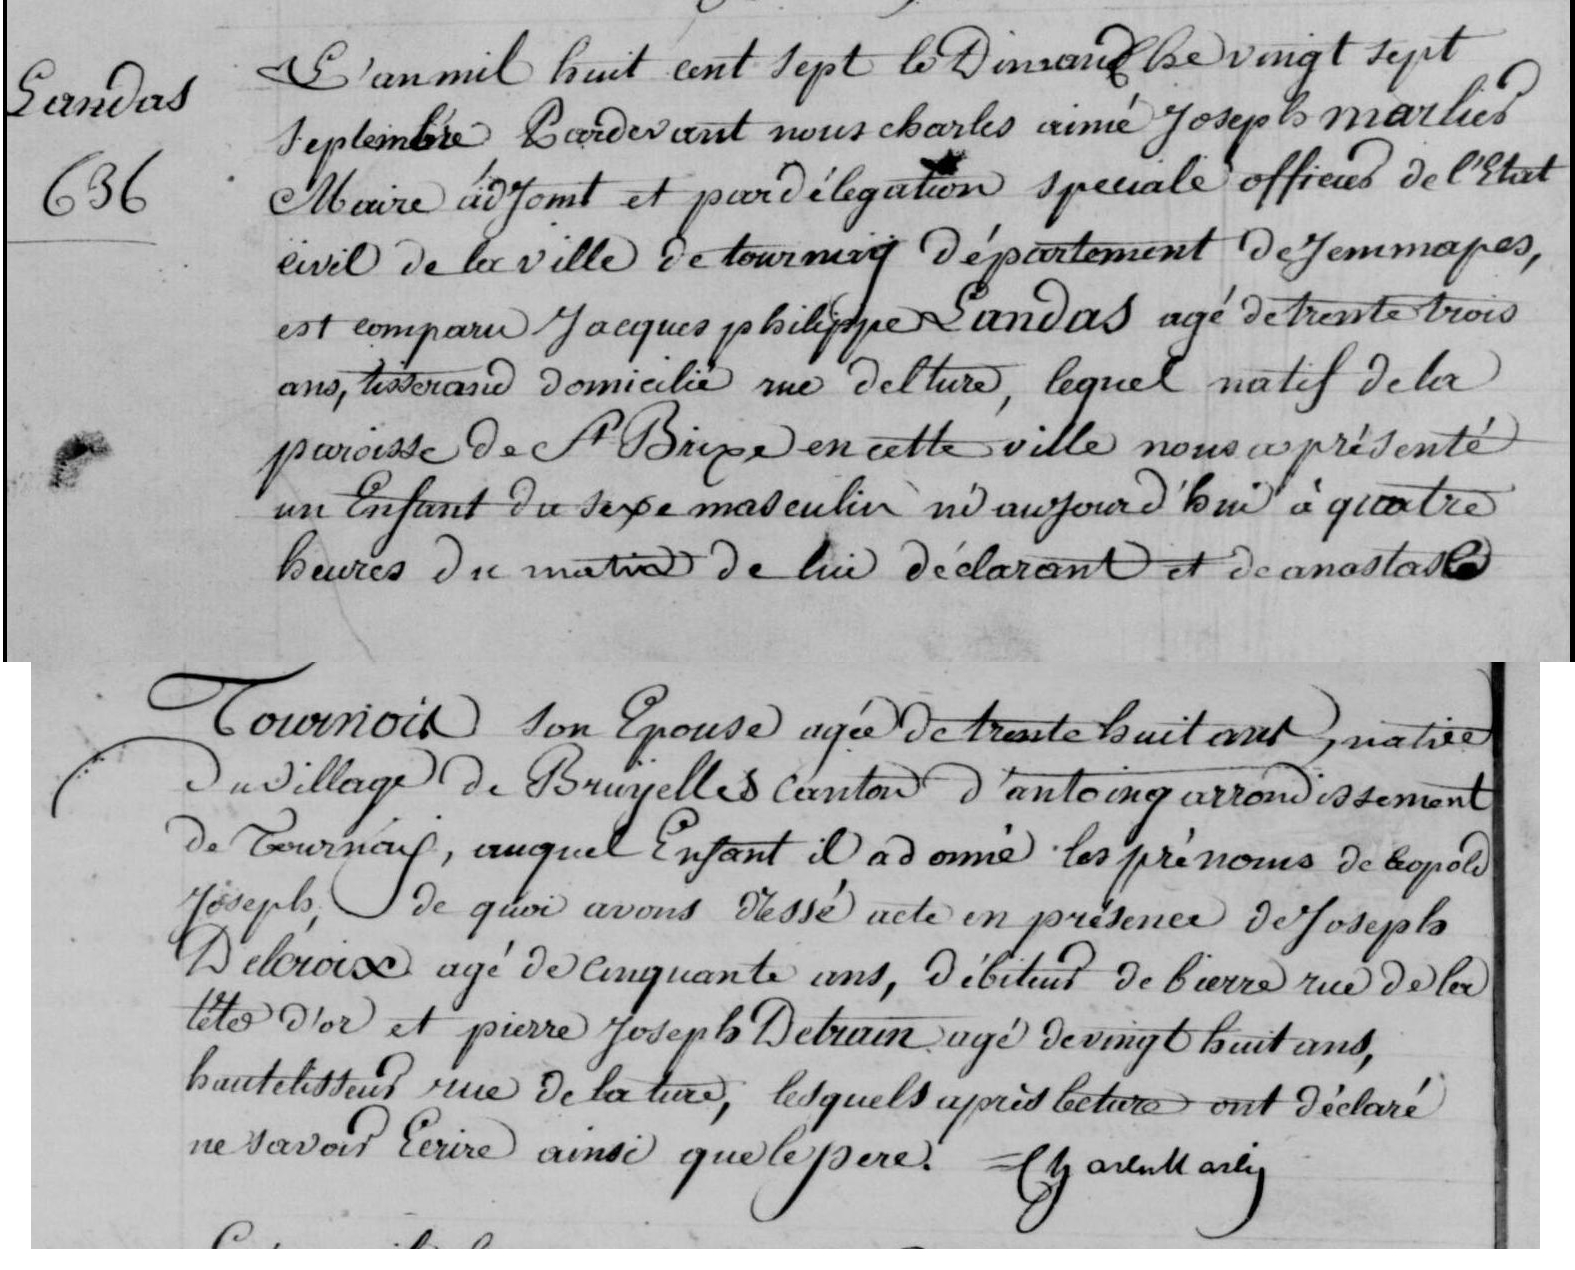 Landas
636
L'an mil huit cent sept le Dimanche vingt sept
Septembre Pardevant nous charles aimé Joseph marlier
Maire adJoint et par délegation speciale officier de l'Etat
civil de la ville de tournay département de Jemmapes,
est comparu Jacques philippe Landas agé de trente trois
ans, tisserand domicilié rue delture, lequel natif de la
paroisse de St Brixe en cette ville nous a présenté
un Enfant du sexe masculin né aujourd'hui à quatre
heures du matin de lui déclarant et de anastasie
Tournois son Epouse agée de trente huit ans, native
du village de Bruyelles Canton d'antoing arrondissement
de Tournay, auquel Enfant il a donné les prénoms de Leopold
Joseph, de quoi avons dressé acte en présence de Joseph
Delcroix agé de cinquante ans, débiteur de bierre rue de la
tête d'or et pierre Joseph Detrain agé de vingt huit ans,
hautelisseur rue de la ture, lesquels après lecture ont déclaré
ne savoir Ecrire ainsi que le pere. Charles Marlier